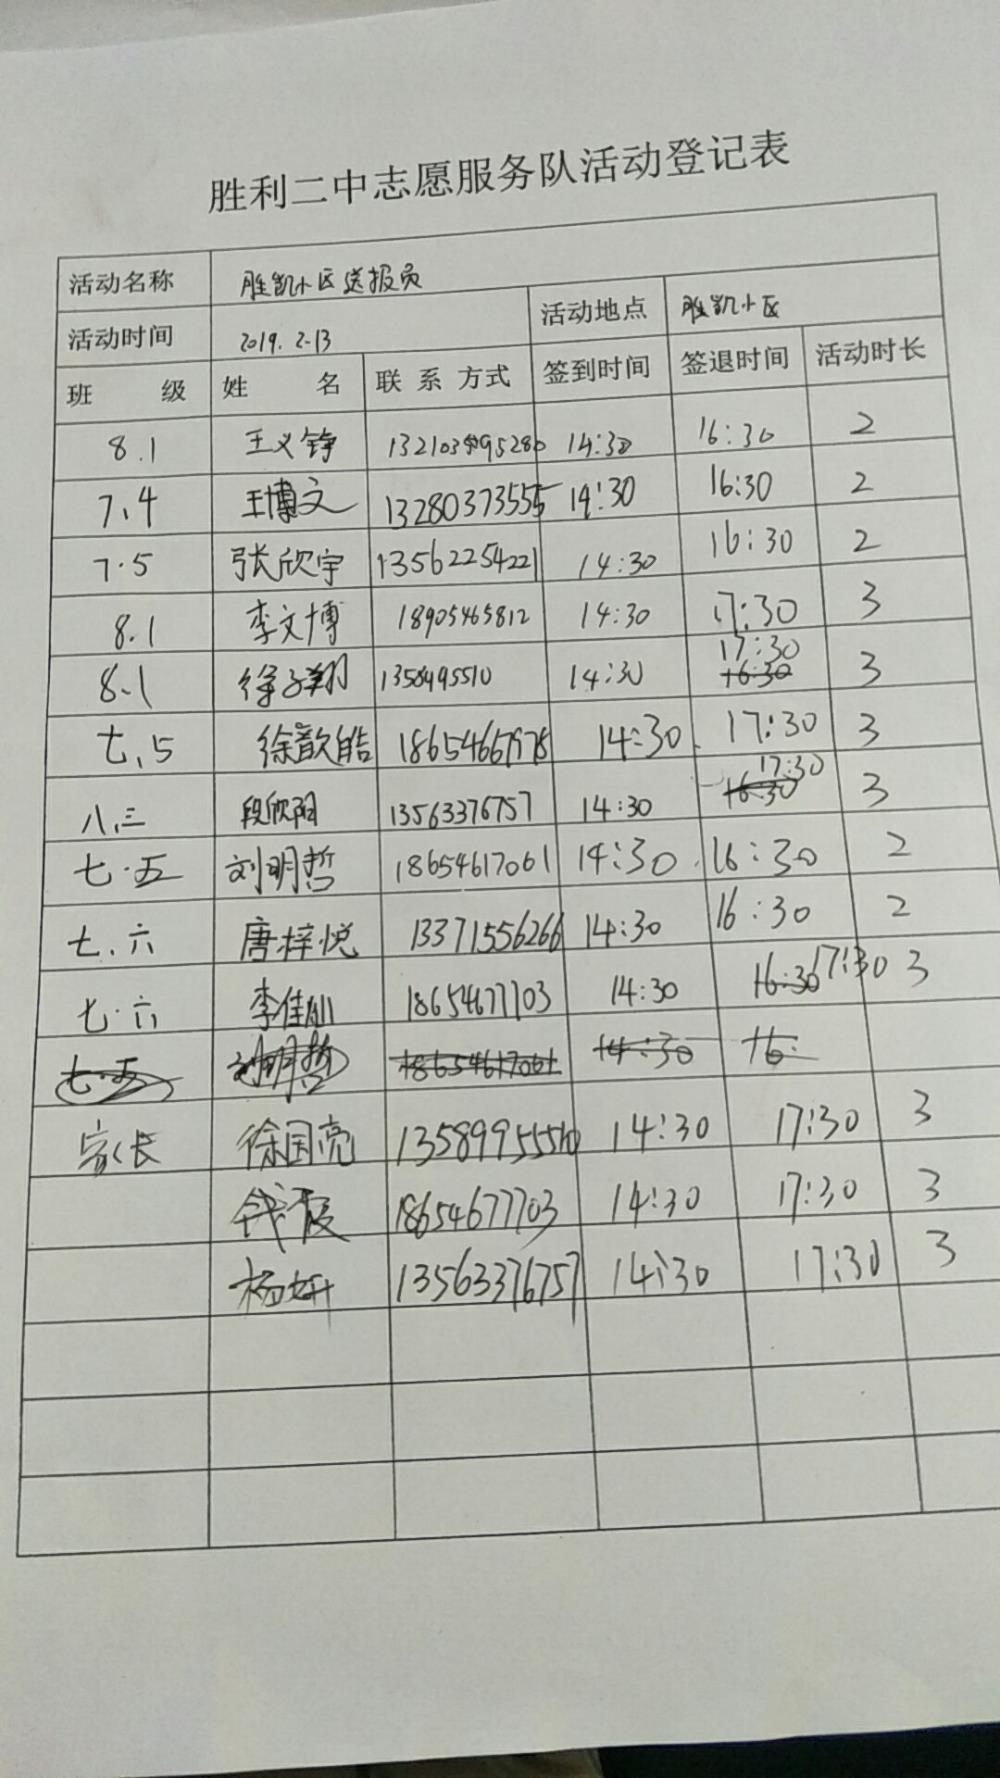 胜利二中志愿服务队活动登记表
活动名称 胜凯小区送报员
活动时间 2019.2.13 活动地点 胜凯小区
班 级 姓 名 联系方式 签到时间 签退时间 活动时长
8.1 王义铮 14:30 16:30 2
7.4 王博文 13280373555 14:30 16:30 2
7.5 张欣宇 13562254221 14:30 16:30 2
8.1 李文博 18905465812 14:30 17:30 3
8.1 徐子翔 1358495510 14:30 17:30 16:30 3
七.5 徐歆皓 14:30 17:30 3
八.三 段欣阳 13563376757 14:30 17:30 16:30 3
七.五 刘明哲 18654617061 14:30 16:30 2
七.六 唐梓悦 13371556266 14:30 16:30 2
七.六 李佳 18654677703 14:30 16:30 17:30 3
七.五 刘明哲 18654617061 14:30 16:
家长 徐国亮 14:30 17:30 3
钱霞 18654677703 14:30 17:30 3
杨妍 13563376757 14:30 17:30 3